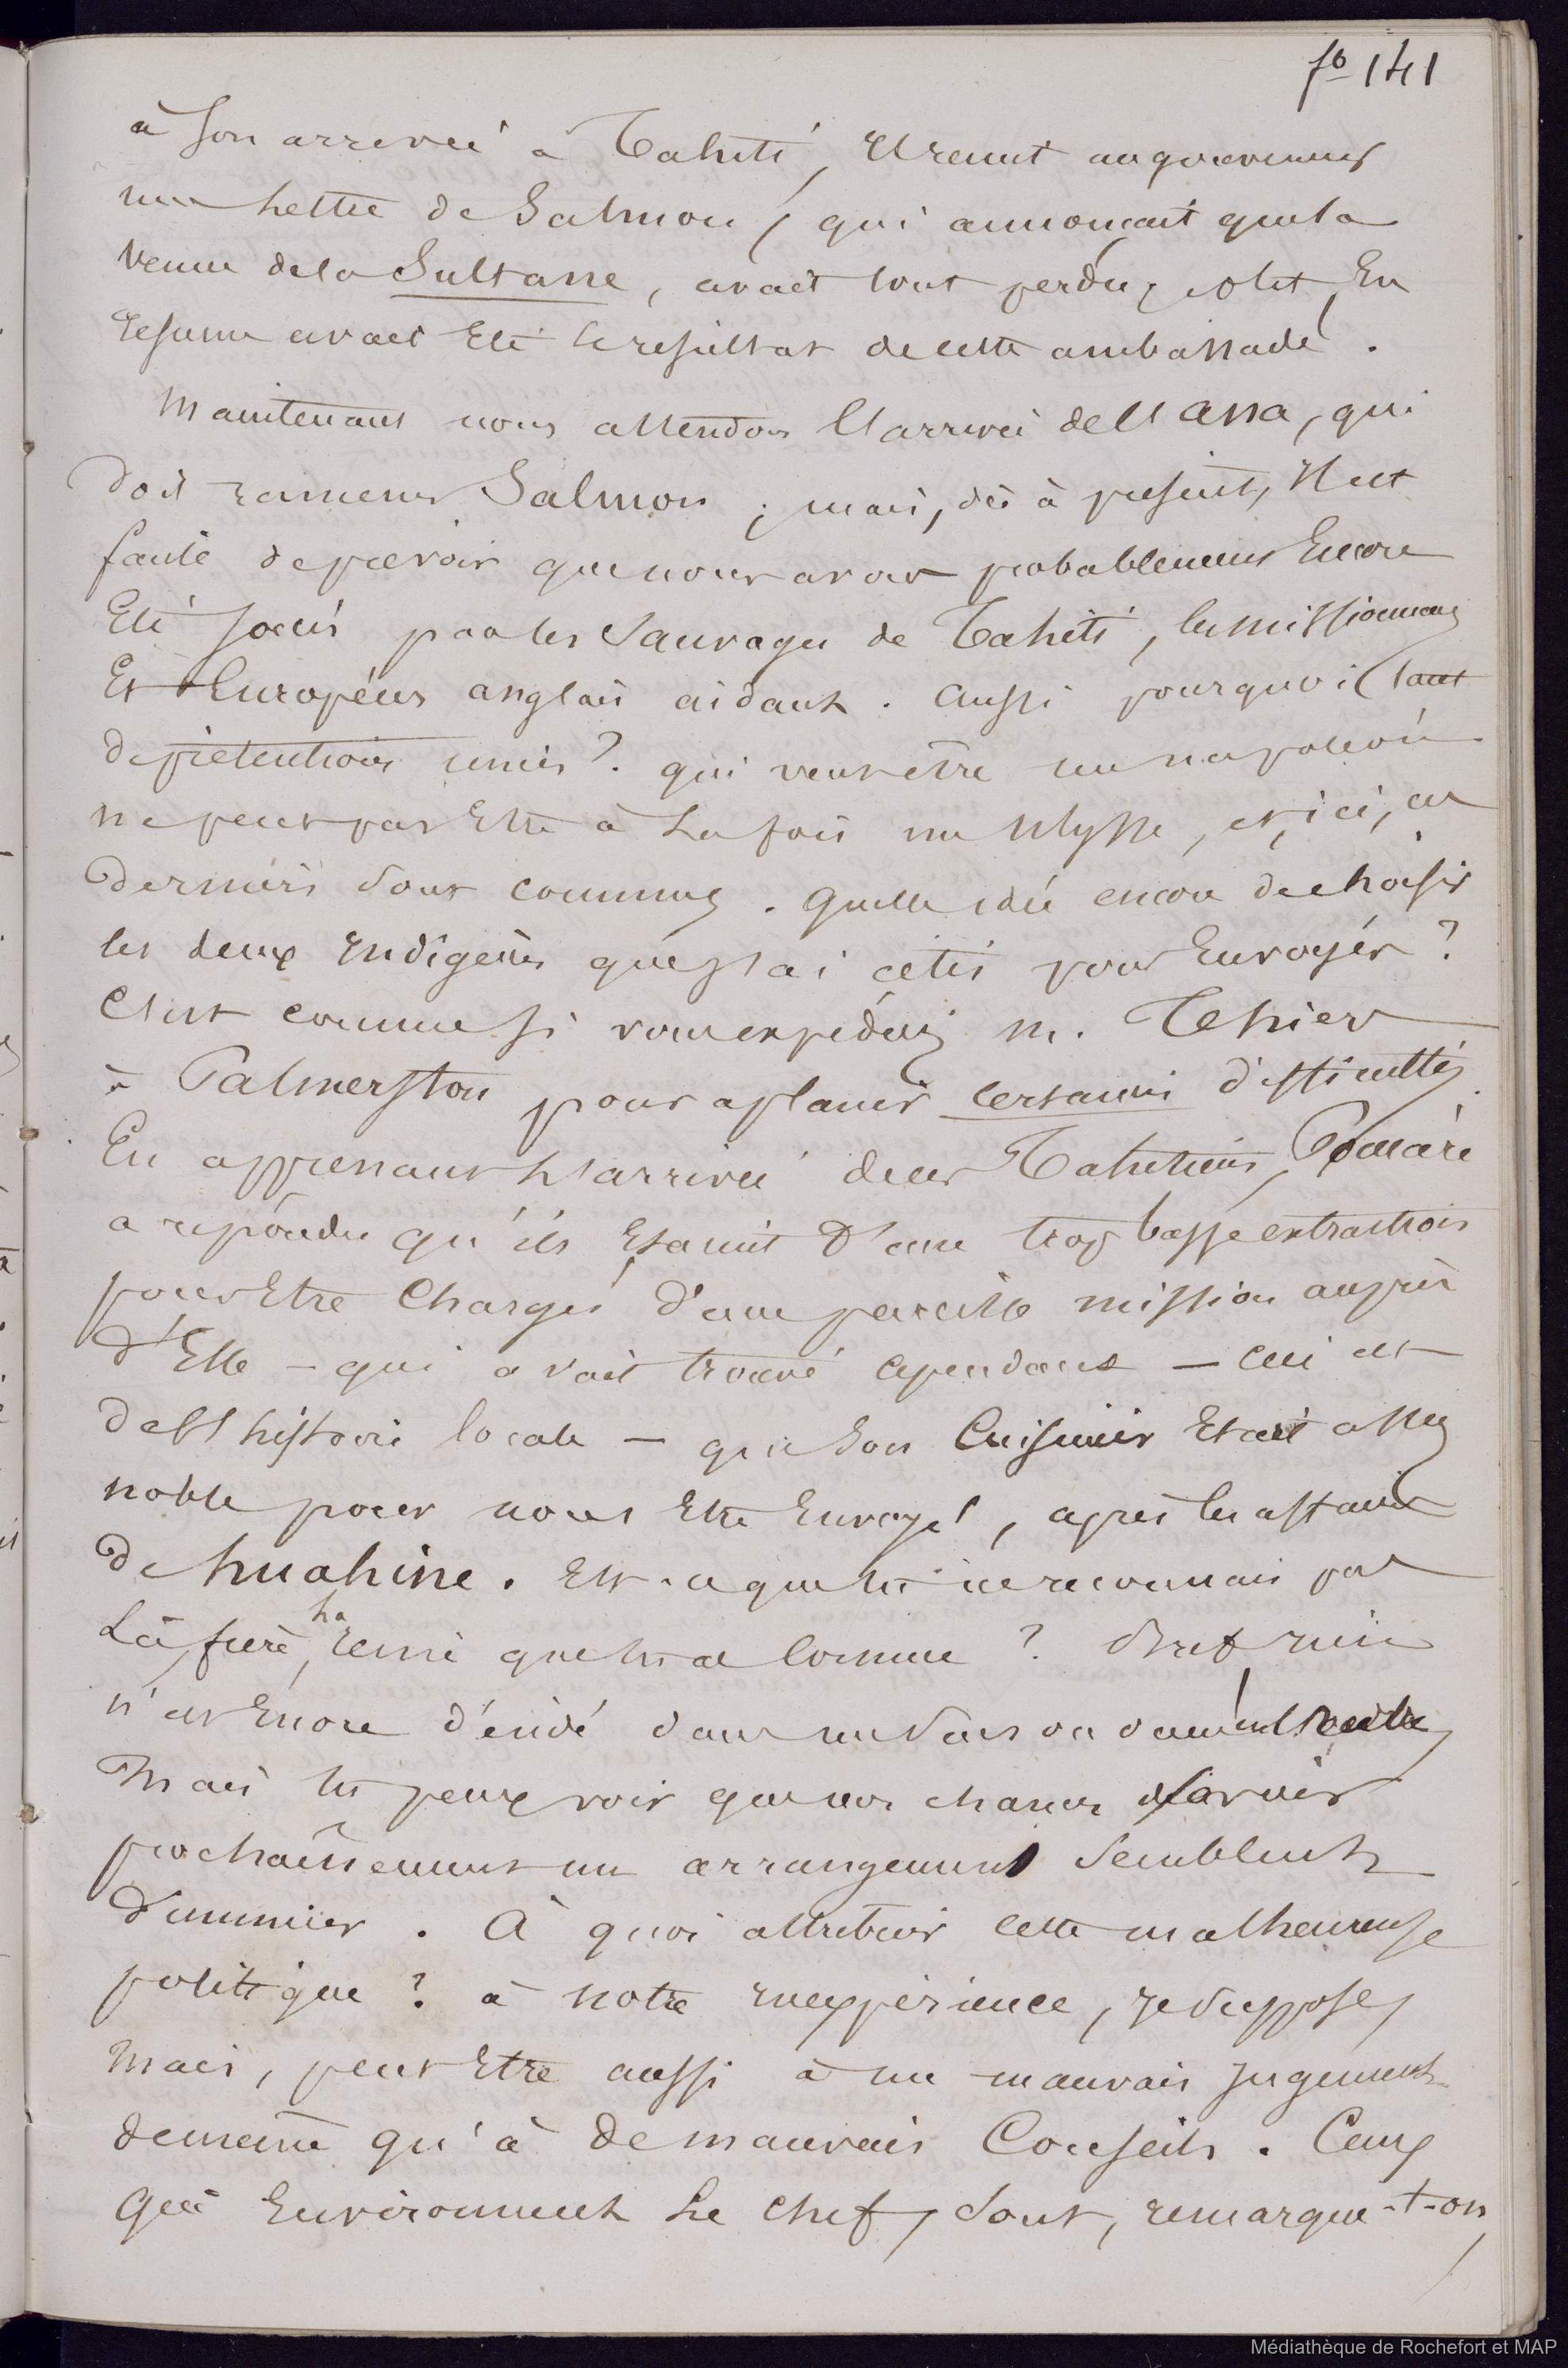 fo 141
à son arrivée à Tahiti, Il remit au gouverneur
une Lettre de Salmon, qui annonçait que la
Venue de la Sultane, avait tout perdu, Et En
résumé avait Eté le resultat de cette ambassade.
Maintenant nous attendons l'arrivée de l'anna, qui
doit ramener Salmon ; mais, dès à présent, Il est
facile de prévoir que nous avons probablement Encore
Eté joués par les Sauvages de Tahiti, les missionnaires
Et Européens anglais aidant. Aussi pourquoi tant
de prétentions unies ? qui veut être un napoléon
ne peut pas Etre à La fois un Ulysse, et, ici, ces
derniers sont communs. Quelle idée encore de choisir
les deux Indigènes que j'ai cités pour Envoyés ?
C'est comme si vous expédiez M. Tehier
à Palmerston pour aplanir certaines difficultés.
En apprenant L'arrivée de ces Tahitiens, Pomaré
a répondu qu'ils Etaient d'une trop basse extraction
pour Etre Chargés d'une pareille mission auprès
d'Elle — qui avait trouvé cependant — ceci est
de l'histoire locale — que son Cuisinier Etait assez
noble pour nous Etre Envoyé, après les affaires
de huahine. Est-ce que tu ne reconnais pas
Là, la fière, reine que tu as connue ? Bref rien
n'est Encore décidé dans un sens ou dans l'autre,
Mais tu peux voir que nos chances d'avoir
prochainement un arrangement Semblent
diminuer. À quoi attribuer cette malheureuse
politique ? à notre inexpérience, je suppose,
Mais, peut Etre aussi à un mauvais jugement
de même qu'à de mauvais Conseils. Ceux
qui Environnent Le Chef, Sont, remarque-t-on,
Médiathèque de Rochefort et MAP